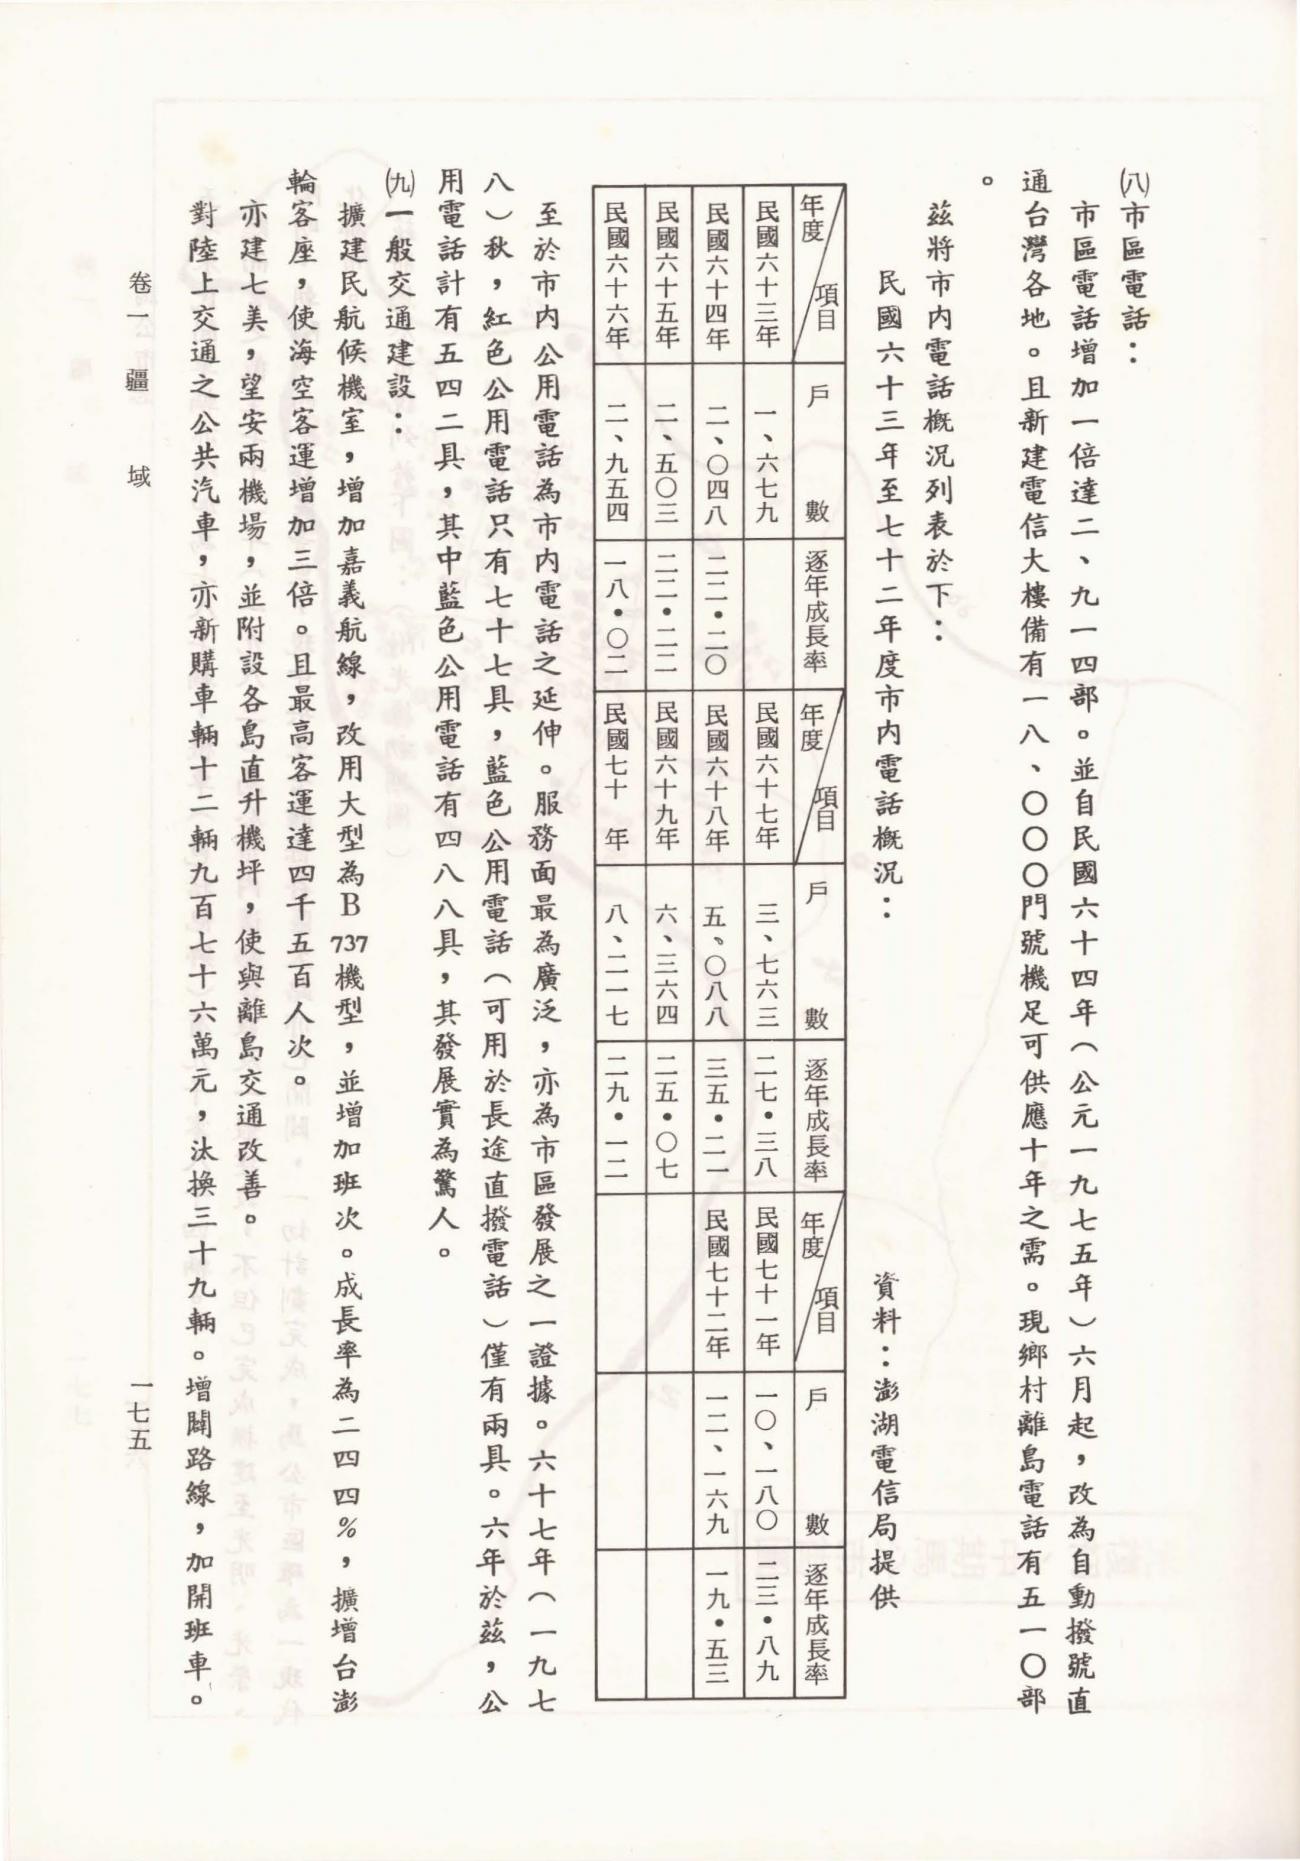 ㈧市區電話：
市區電話增加一倍達二、九一四部。並自民國六十四年（公元一九七五年）六月起，改為自動撥號直
通台灣各地。且新建電信大樓備有一八、〇〇〇門號機足可供應十年之需。現鄉村離島電話有五一〇部
。
茲將市內電話概況列表於下：
民國六十三年至七十二年度市內電話概況： 資料：澎湖電信局提供
年度 項目 戶數 逐年成長率 年度 項目 戶數 逐年成長率 年度 項目 戶數 逐年成長率
民國六十三年 一、六七九 民國六十七年 三、七六三 二七・三八 民國七十一年 一〇、一八〇 二三・八九
民國六十四年 二、〇四八 二二・二〇 民國六十八年 五、〇八八 三五・二一 民國七十二年 一二、一六九 一九・五三
民國六十五年 二、五〇三 二二・二二 民國六十九年 六、三六四 二五・〇七
民國六十六年 二、九五四 一八・〇二 民國七十 年 八、二一七 二九・一二
至於市內公用電話為市內電話之延伸。服務面最為廣泛，亦為市區發展之一證據。六十七年（一九七
八）秋，紅色公用電話只有七十七具，藍色公用電話（可用於長途直撥電話）僅有兩具。六年於茲，公
用電話計有五四二具，其中藍色公用電話有四八八具，其發展實為驚人。
㈨一般交通建設：
擴建民航候機室，增加嘉義航線，改用大型為B737機型，並增加班次。成長率為二四四%，擴增台澎
輪客座，使海空客運增加三倍。且最高客運達四千五百人次。
亦建七美，望安兩機場，並附設各島直升機坪，使與離島交通改善。
對陸上交通之公共汽車，亦新購車輛十二輛九百七十六萬元，汰換三十九輛。增闢路線，加開班車。
卷一 疆 域 一七五